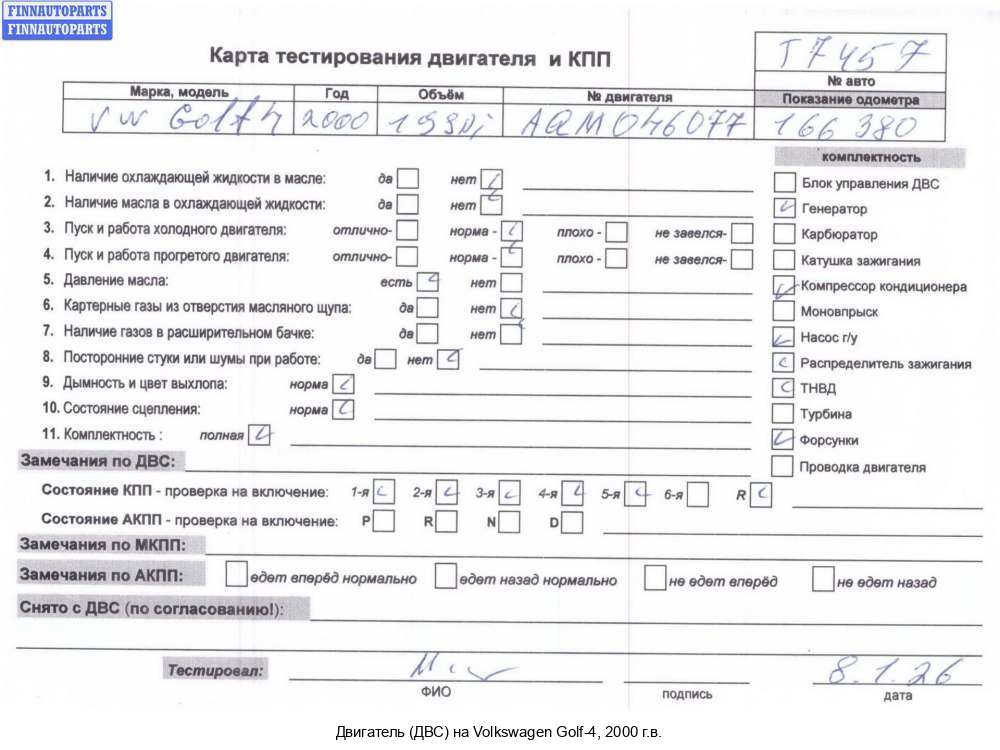 FINNAUTOPARTS
FINNAUTOPARTS
Карта тестирования двигателя и КПП
T7457
№ авто
Марка, модель Год Объём № двигателя Показание одометра
VW Golf 4 2000 1,9SDi AQM046077 166 380
комплектность
1. Наличие охлаждающей жидкости в масле: да нет
2. Наличие масла в охлаждающей жидкости: да нет
3. Пуск и работа холодного двигателя: отлично- норма - плохо - не завелся-
4. Пуск и работа прогретого двигателя: отлично- норма - плохо - не завелся-
5. Давление масла: есть нет
6. Картерные газы из отверстия масляного щупа: да нет
7. Наличие газов в расширительном бачке: да нет
8. Посторонние стуки или шумы при работе: да нет
9. Дымность и цвет выхлопа: норма
10. Состояние сцепления: норма
11. Комплектность : полная
Блок управления ДВС
Генератор
Карбюратор
Катушка зажигания
Компрессор кондиционера
Моновпрыск
Насос г/у
Распределитель зажигания
ТНВД
Турбина
Форсунки
Проводка двигателя
Замечания по ДВС:
Состояние КПП - проверка на включение: 1-я 2-я 3-я 4-я 5-я 6-я R
Состояние АКПП - проверка на включение: P R N D
Замечания по МКПП:
Замечания по АКПП: едет вперёд нормально едет назад нормально не едет вперёд не едет назад
Снято с ДВС (по согласованию!):
Тестировал: 8.1.26
ФИО подпись дата
Двигатель (ДВС) на Volkswagen Golf-4, 2000 г.в.